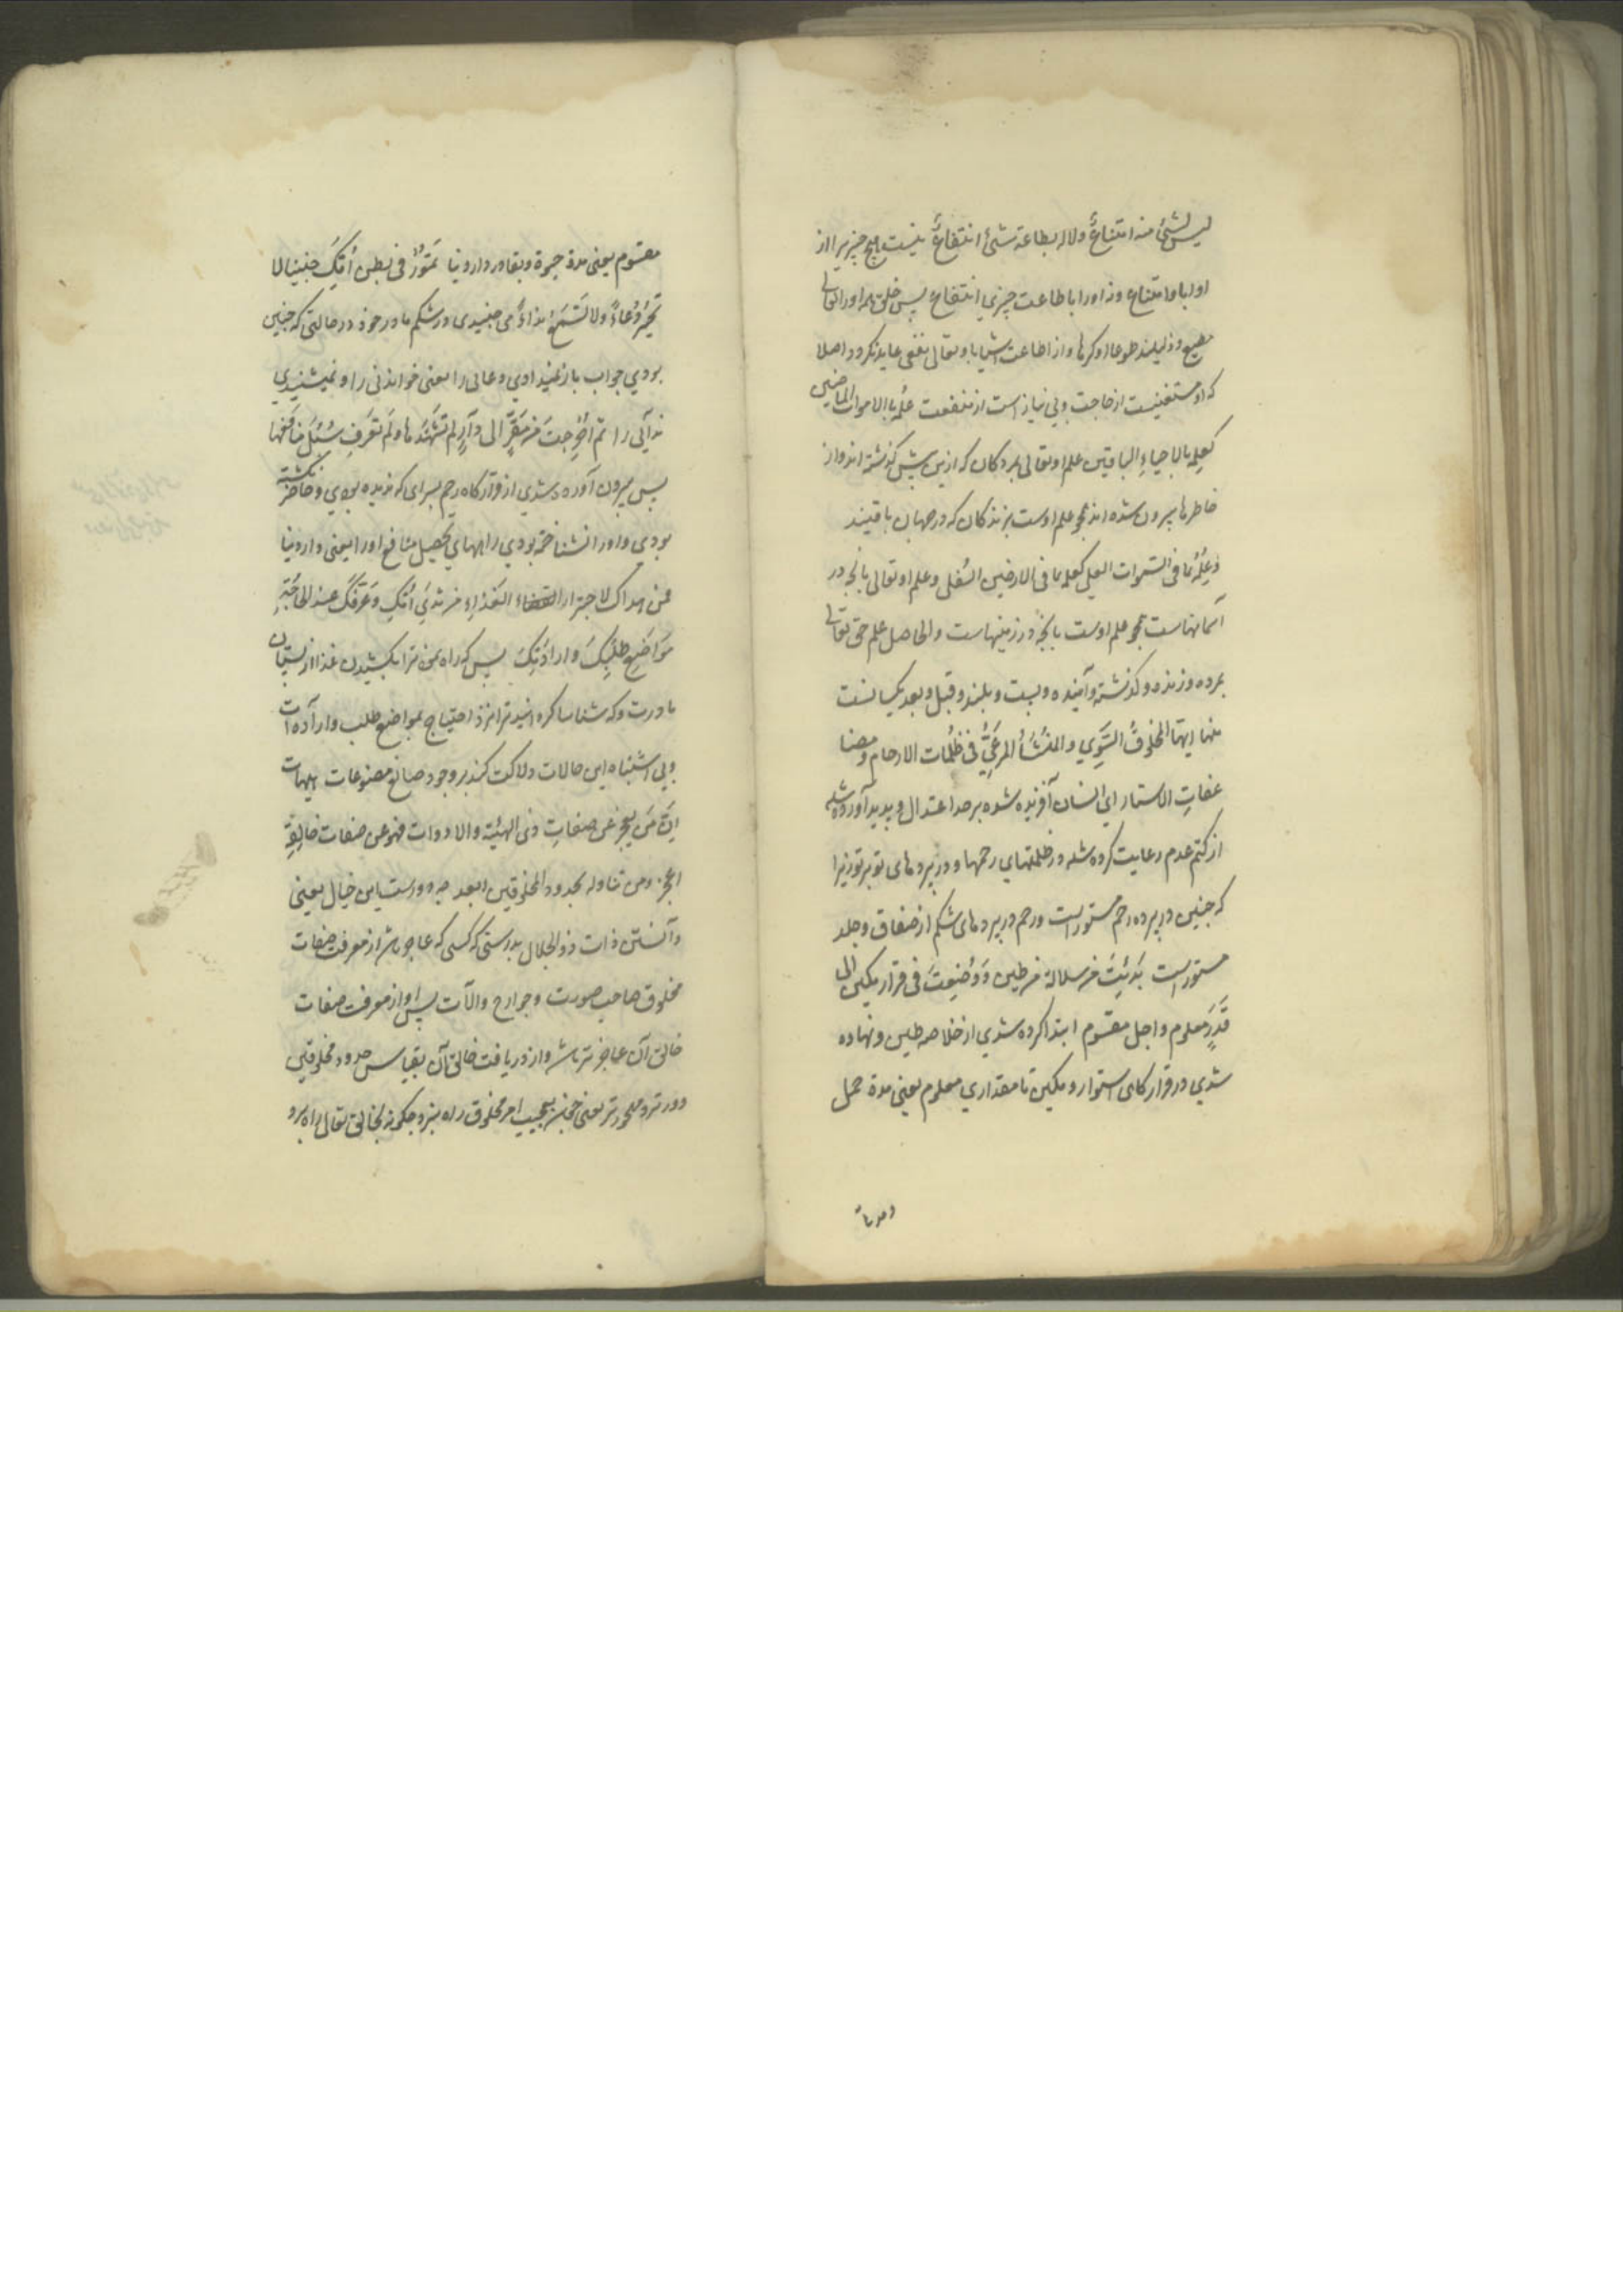 لیس لشئ منه امتناعٌ ولا له بطاعة شئ انتفاعٌ نیست هیچ چیزیرا از
او ابا و امتناع و نه اورا با طاعت چیزی انتفاع پس خلق همه اورا تعالی
مطیع و ذلیلند طوعا او کرها و از اطاعت اشیا باو تعالی نفعی عاید نکردد اصلا
که او مستغنیست از حاجت و بی نیاز است از منفعت علمه بالاموات الماضین
کعلمه بالاحیاءِ الباقین علم او تعالی بمردکان که ازین پیش کذشته اند و از
خاطرها بیرون شده اند همچو علم اوست بزندکان که در جهان باقیند
وعلمُه بما فی السموات العلی کعلمه بما فی الارضین السُفلی و علم او تعالی بانچه در
آسمانهاست همچو علم اوست بانچه در زمینهاست والحاصل علم حق تعالی
بمرده و زنده و کذشته و آینده و پست و بلند و قبل و بعد یکسانست
منها ایها المخلوقُ السَّوِی والمُنشَأُ المرعِیُّ فی ظلُمات الارحام و مضا
عفاتِ الاستار ای انسان آفریده شده برحد اعتدال و پدید آورده شده
از کتم عدم رعایت کرده شده در ظلمتهای رحمها و در پرده های تو بر تو زیرا
که جنین در پرده رحم مستور است و رحم در پرده های شکم از صفاق و جلد
مستور است بُدِئتَ من سلالة من طین وَوُضِعتَ فی قرار مکین الی
قَدَرٍ معلوم و اجل مقسوم ابتدا کرده شدی از خلاصه طین و نهاده
شدی در قرارکاهی استوار و مکین تا مقداری معلوم یعنی مدة حمل
مقسوم یعنی مدة حیوة و بقا در دار دنیا تمَورُ فی بطن اُمّکَ جنینا لا
تُحیرُ دُعاءً ولا تَسْمَعُ نداءً می جنبیدی در شکم مادر خود در حالتی که جنین
بودی جواب باز نمیدادی دعائی را یعنی خواندنی را و نمیشنیدی
ندائی را ثم اُخْرِجتَ من مَقَرِّک الی دارٍ لم تَشْهَدها ولَم تَعَرف سُبُلَ منافعها
پس بیرون آورده شدی از قرارکاه رحم بسرای که ندیده بودی و حاضر نکشته
بودی و اورا نشناخته بودی راههای تحصیل منافع اورا یعنی دار دنیا
فمن هداک لاجترار الغذاءِ من ثَدیِ اُمّکِ وعَرَّفَکَ عند الحاجَةِ
مَوَاضِعَ طلَبِکَ و ارادَتِکَ پس که راه نمود ترا بکشیدن غذا از پستان
مادرت و که شناسا کردانید ترا نزد احتیاج بمواضع طلب و ارآده ات
و بی اشتباه این حالات دلالت کند بر وجود صانع مصنوعات هیهات
اِنَّ مَن یعجز عن صفاتِ ذی الهیئة والادوات فهو عن صفات خالِقِهِ
اعجز و من تناوله بحدود المخلوقین ابعد چه دورست این خیال یعنی
دانستن ذات ذوالجلال بدرستی که کسی که عاجز باشد از معرفت صفات
مخلوق صاحب صورت و جوارح و الآت پس او از معرفت صفات
خالق آن عاجز تر باشد و از دریافت خالق آن بقیاس حدود مخلوقین
دورتر و مهجورتر یعنی چون بعجیب امر مخلوق راه نبرد چکونه بخالق تعالی راه برد